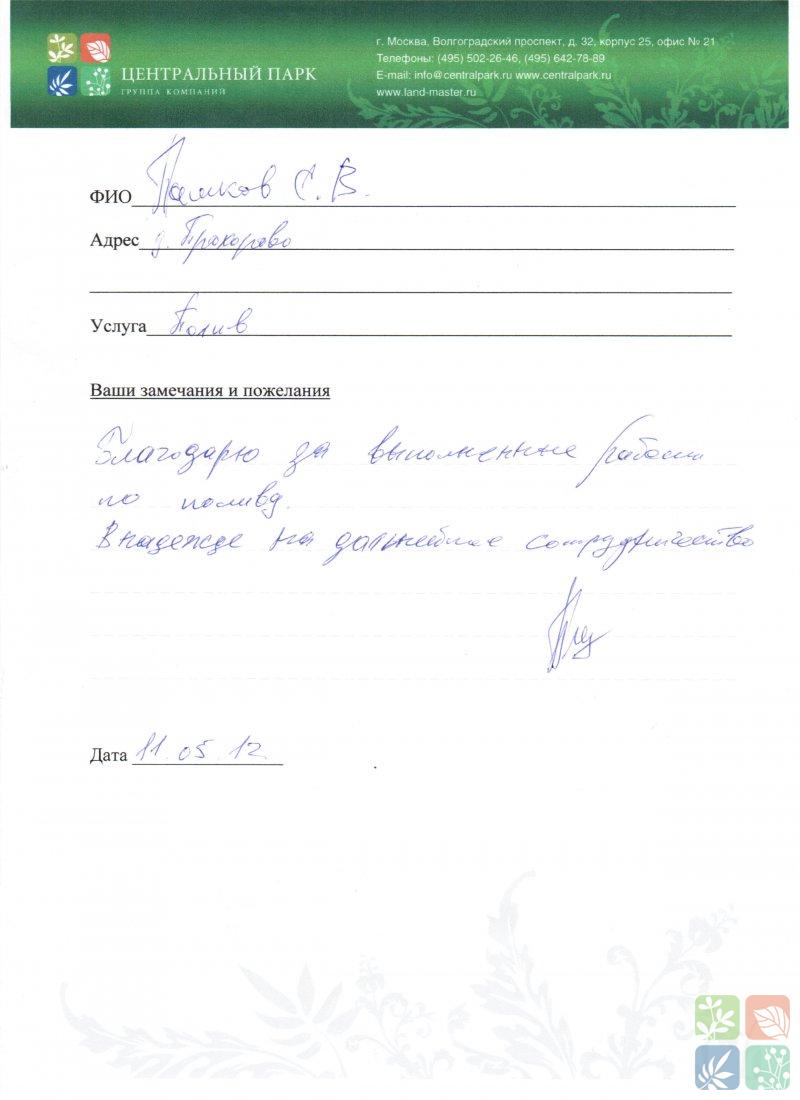 ЦЕНТРАЛЬНЫЙ ПАРК
ГРУППА КОМПАНИЙ
г. Москва, Волгоградский проспект, д. 32, корпус 25, офис № 21
Телефоны: (495) 502-26-46, (495) 642-78-89
E-mail: info@centralpark.ru www.centralpark.ru
www.land-master.ru
ФИО С. В.
Адрес д. Прохорово
Услуга Полив
Ваши замечания и пожелания
Благодарю за выполненные работы
по поливу.
В надежде на дальнейшее сотрудничество
Дата 11.05.12